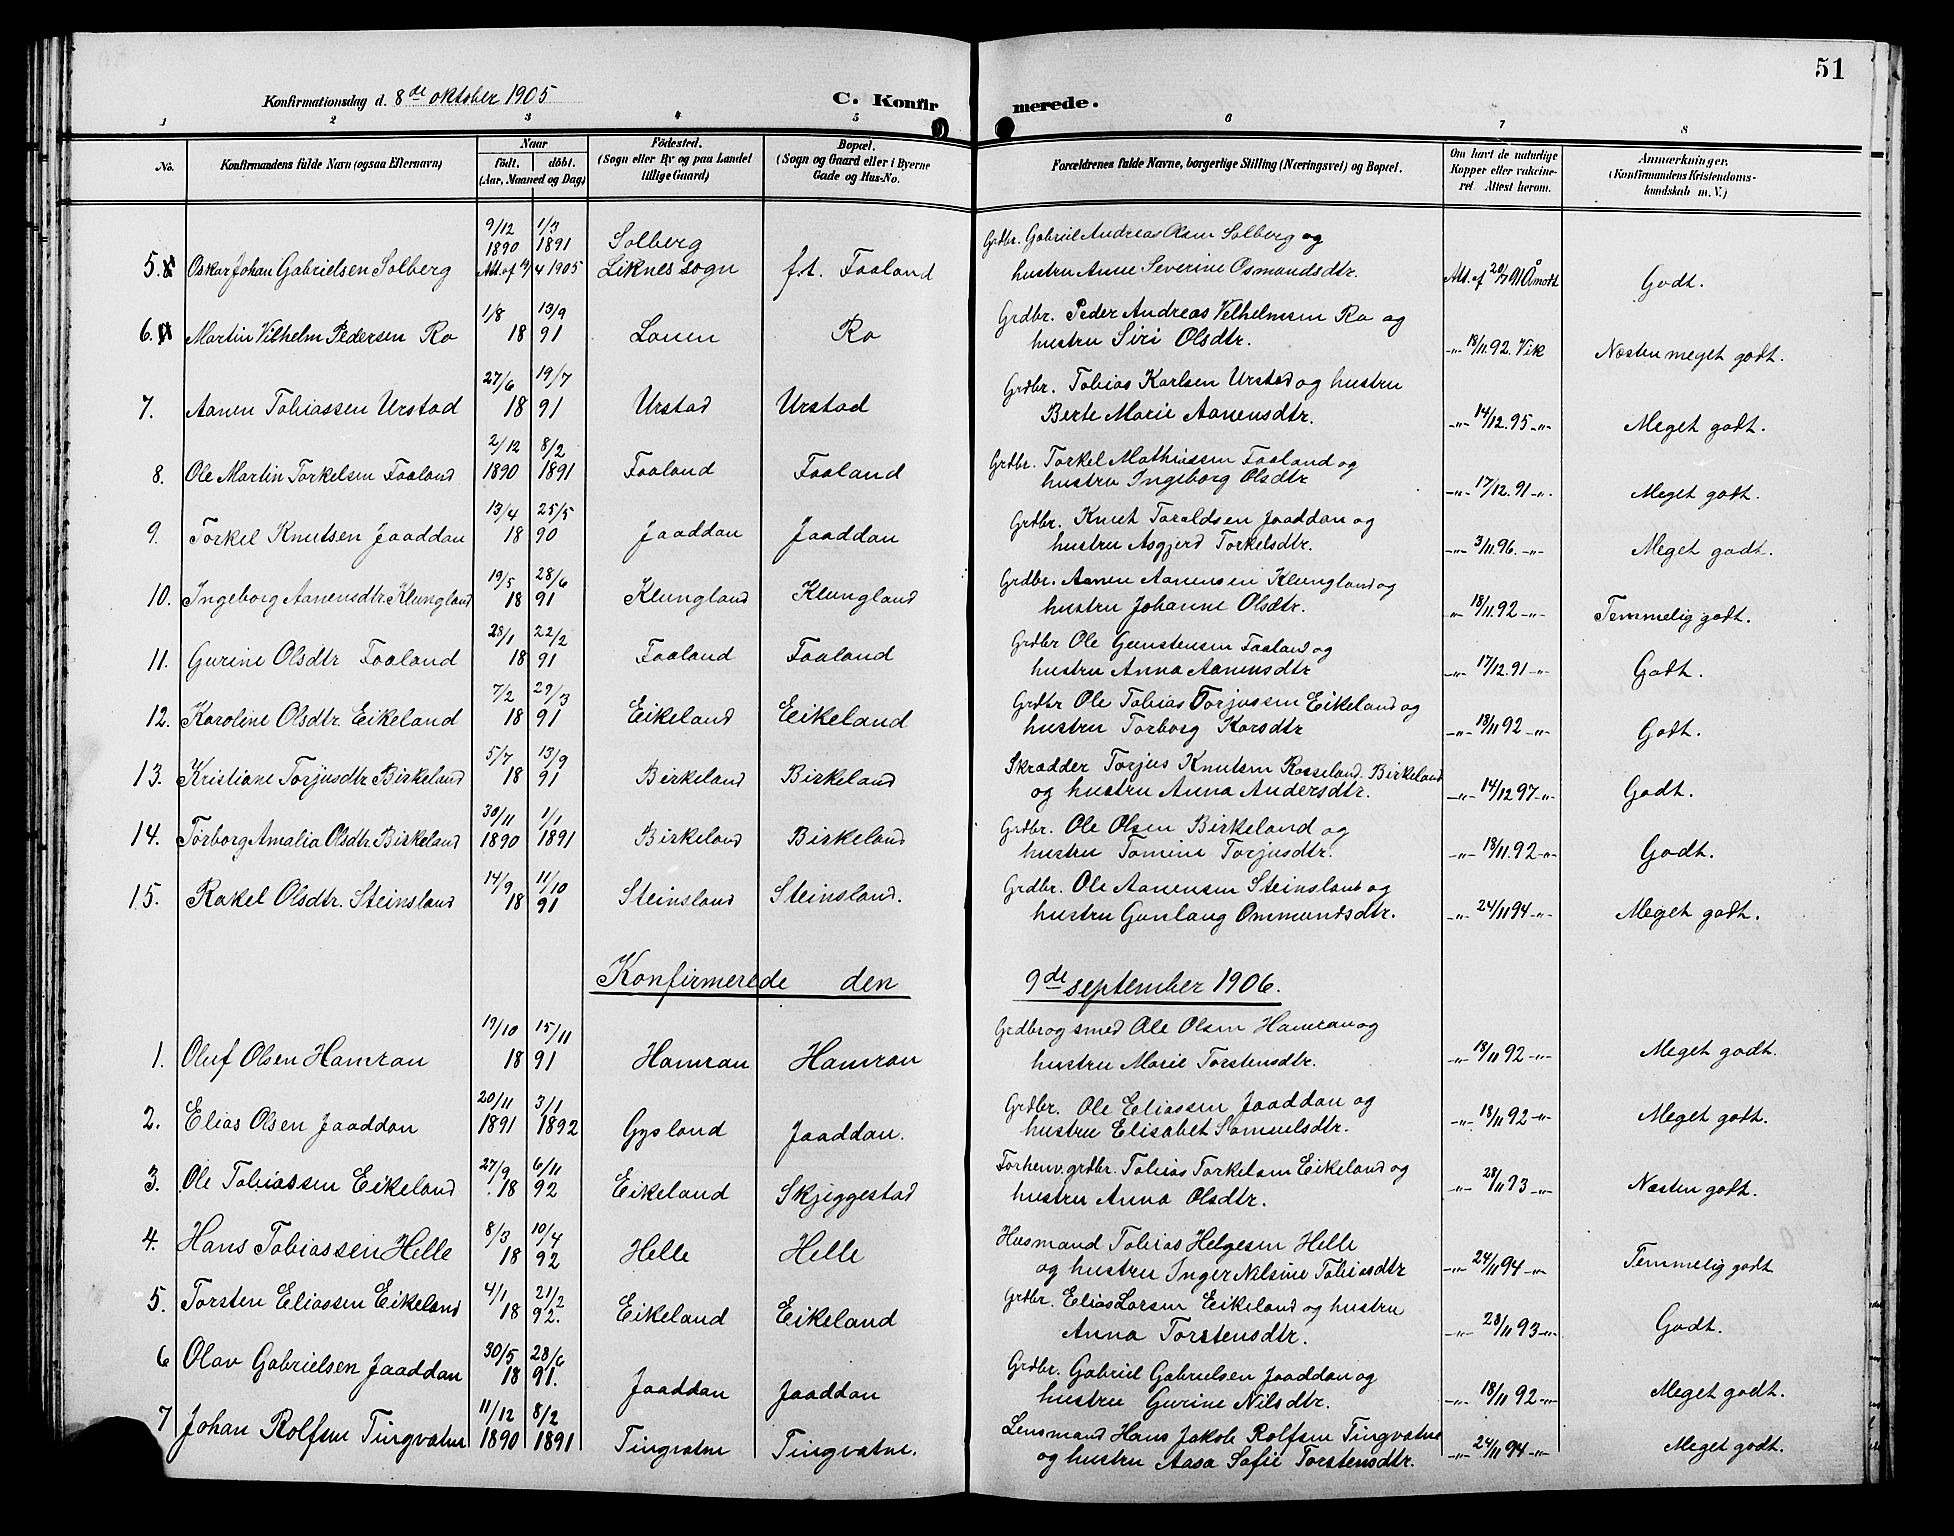 51
Konfirmationsdag d. 8de oktober 1905 C. Konfirmerede.
1 2 3 4 5 6 7 8
No. Konfirmandens fulde Navn (ogsaa Efternavn) Naar født. døbt. (Aar, Maaned og Dag) Fødested. (Sogn eller By og paa Landet tillige Gaard) Bopæl. (Sogn og Gaard eller i Byerne Gade og Hus-No. Forældrenes fulde Navne, borgerlige Stilling (Næringsvei) og Bopæl. Om havt de naturlige Kopper eller vakcineret Attest herom. Anmærkninger. (Konfirmandens Kristendomskundskab m. V.)
5. Oskar Johan Gabrielsen Solberg 9/12 1890 1/3 1891 Att. af 4 1905 Solberg Liknes sogn f.t. Faaland Grdbr. Gabriel Andreas Olsen Solberg og
hustru Anne Severine Osmundsdtr. Att. af Åmodt Godt.
6. Martin Vilhelm Pedersen Ro 1/8 13/9 18 91 Lonen Ro Grdbr. Peder Andreas Velhelmsen Ro og
hustru Siri Olsdtr. -"- 18/11.92. Vik Næsten meget godt.
7. Aanen Tobiassen Urstad 27/6 19/7 18 91 Urstad Urstad Grdbr. Tobias Karlsen Urstad og hustru
Berte Marie Aanensdtr. -"- 14/12.95 -"- Meget godt.
8. Ole Martin Torkelsen Faaland 2/12 1890 8/2 1891 Faaland Faaland Grdbr. Torkel Mathiassen Faaland og
hustru Ingeborg Olsdtr -"- 17/12.91 -"- Meget godt.
9. Torkel Knutsen Jaaddan 13/4 25/5 18 90 Jaaddan Jaaddan Grdbr. Knut Taraldsen Jaaddan og
hustru Asgjerd Torkelsdtr. -"- 3/11.96. -"- Meget godt.
10. Ingeborg Aanensdtr. Klungland 19/5 28/6 18 91 Klungland Klungland Grdbr. Aanen Aanensen Klungland og
hustru Johanne Olsdtr. " 18/11.92 -"- Temmelig godt.
11. Gurine Olsdtr Faaland 28/1 22/2 18 91 Faaland Faaland Grdbr Ole Gunstensen Faaland og
hustru Anna Aanensdtr -"- 17/12.91 -"- Godt.
12. Karoline Olsdtr. Eikeland 7/2 29/3 18 91 Eikeland Eikeland Grdbr Ole Tobias Torjussen Eikeland og
hustru Torborg Larsdtr -"- 18/11 92 -"- Godt.
13. Kristiane Torjusdtr. Birkeland 5/7 13/9 18 91 Birkeland Birkeland Skrædder Torjus Knutsen Rosseland. Birkeland
og hustru Anna Andersdtr. -"- 14/12 97 -"- Godt.
14. Torborg Amalia Olsdtr. Birkeland 30/11 1890 1/1 1891 Birkeland Birkeland Grdbr. Ole Olsen Birkeland og
hustru Tomine Torjusdtr. -"- 18/11.92 -"- Godt.
15. Rakel Olsdtr. Steinsland 14/9 11/10 18 91 Steinsland Steinsland. Grdbr. Ole Aanensen Steinsland og
hustru Gunlaug Ommundsdtr. -"- 24/11 94 -"- Meget godt.
Konfirmerede den 9de september 1906.
1. Oluf Olsen Hamran 19/10 15/11 18 91 Hamran Hamran Grdbr og smed Ole Olsen Hamran og
hustru Marie Torstensdtr. -"- 18/11 92 -"- Meget godt.
2. Elias Olsen Jaaddan 20/11 1891 3/1 1892 Gysland Jaaddan. Grdbr. Ole Eliassen Jaaddan og
hustru Elisabet Samuelsdtr. -"- 18/11 92 -"- Meget godt.
3. Ole Tobiassen Eikeland 27/9 6/11 18 92 Eikeland Skjeggestad Forhenv. grdbr. Tobias Torkelsen Eikeland og
hustru Anna Olsdtr. -"- 28/11 93 -"- Næsten godt.
4. Hans Tobiassen Helle 8/3 10/4 18 92 Helle Helle Husmand Tobias Helgesen Helle
og hustru Inger Nilsine Tobiasdtr -"- 24/11 94 -"- Temmelig godt
5. Torsten Eliassen Eikeland 4/1 21/2 18 92. Eikeland Eikeland Grdbr. Elias Larsen Eikeland og hustru
Anna Torstensdtr. -"- 28/11 93 -"- Godt.
6 Olav Gabrielsen Jaaddan 30/5 28/6 18 91. Jaaddan Jaaddan Grdbr. Gabriel Gabrielsen Jaaddan og
hustru Gurine Nilsdtr. -"- 18/11 92 -"- Meget godt.
7 Johan Rolfsen Tingvatne 11/12 1890 8/2 1891 Tingvatne Tingvatne. Lensmand Hans Jakob Rolfsen Tingvatne
og hustru Aasa Sofie Torstensdtr. -"- 24/11 94 -"- Meget godt.